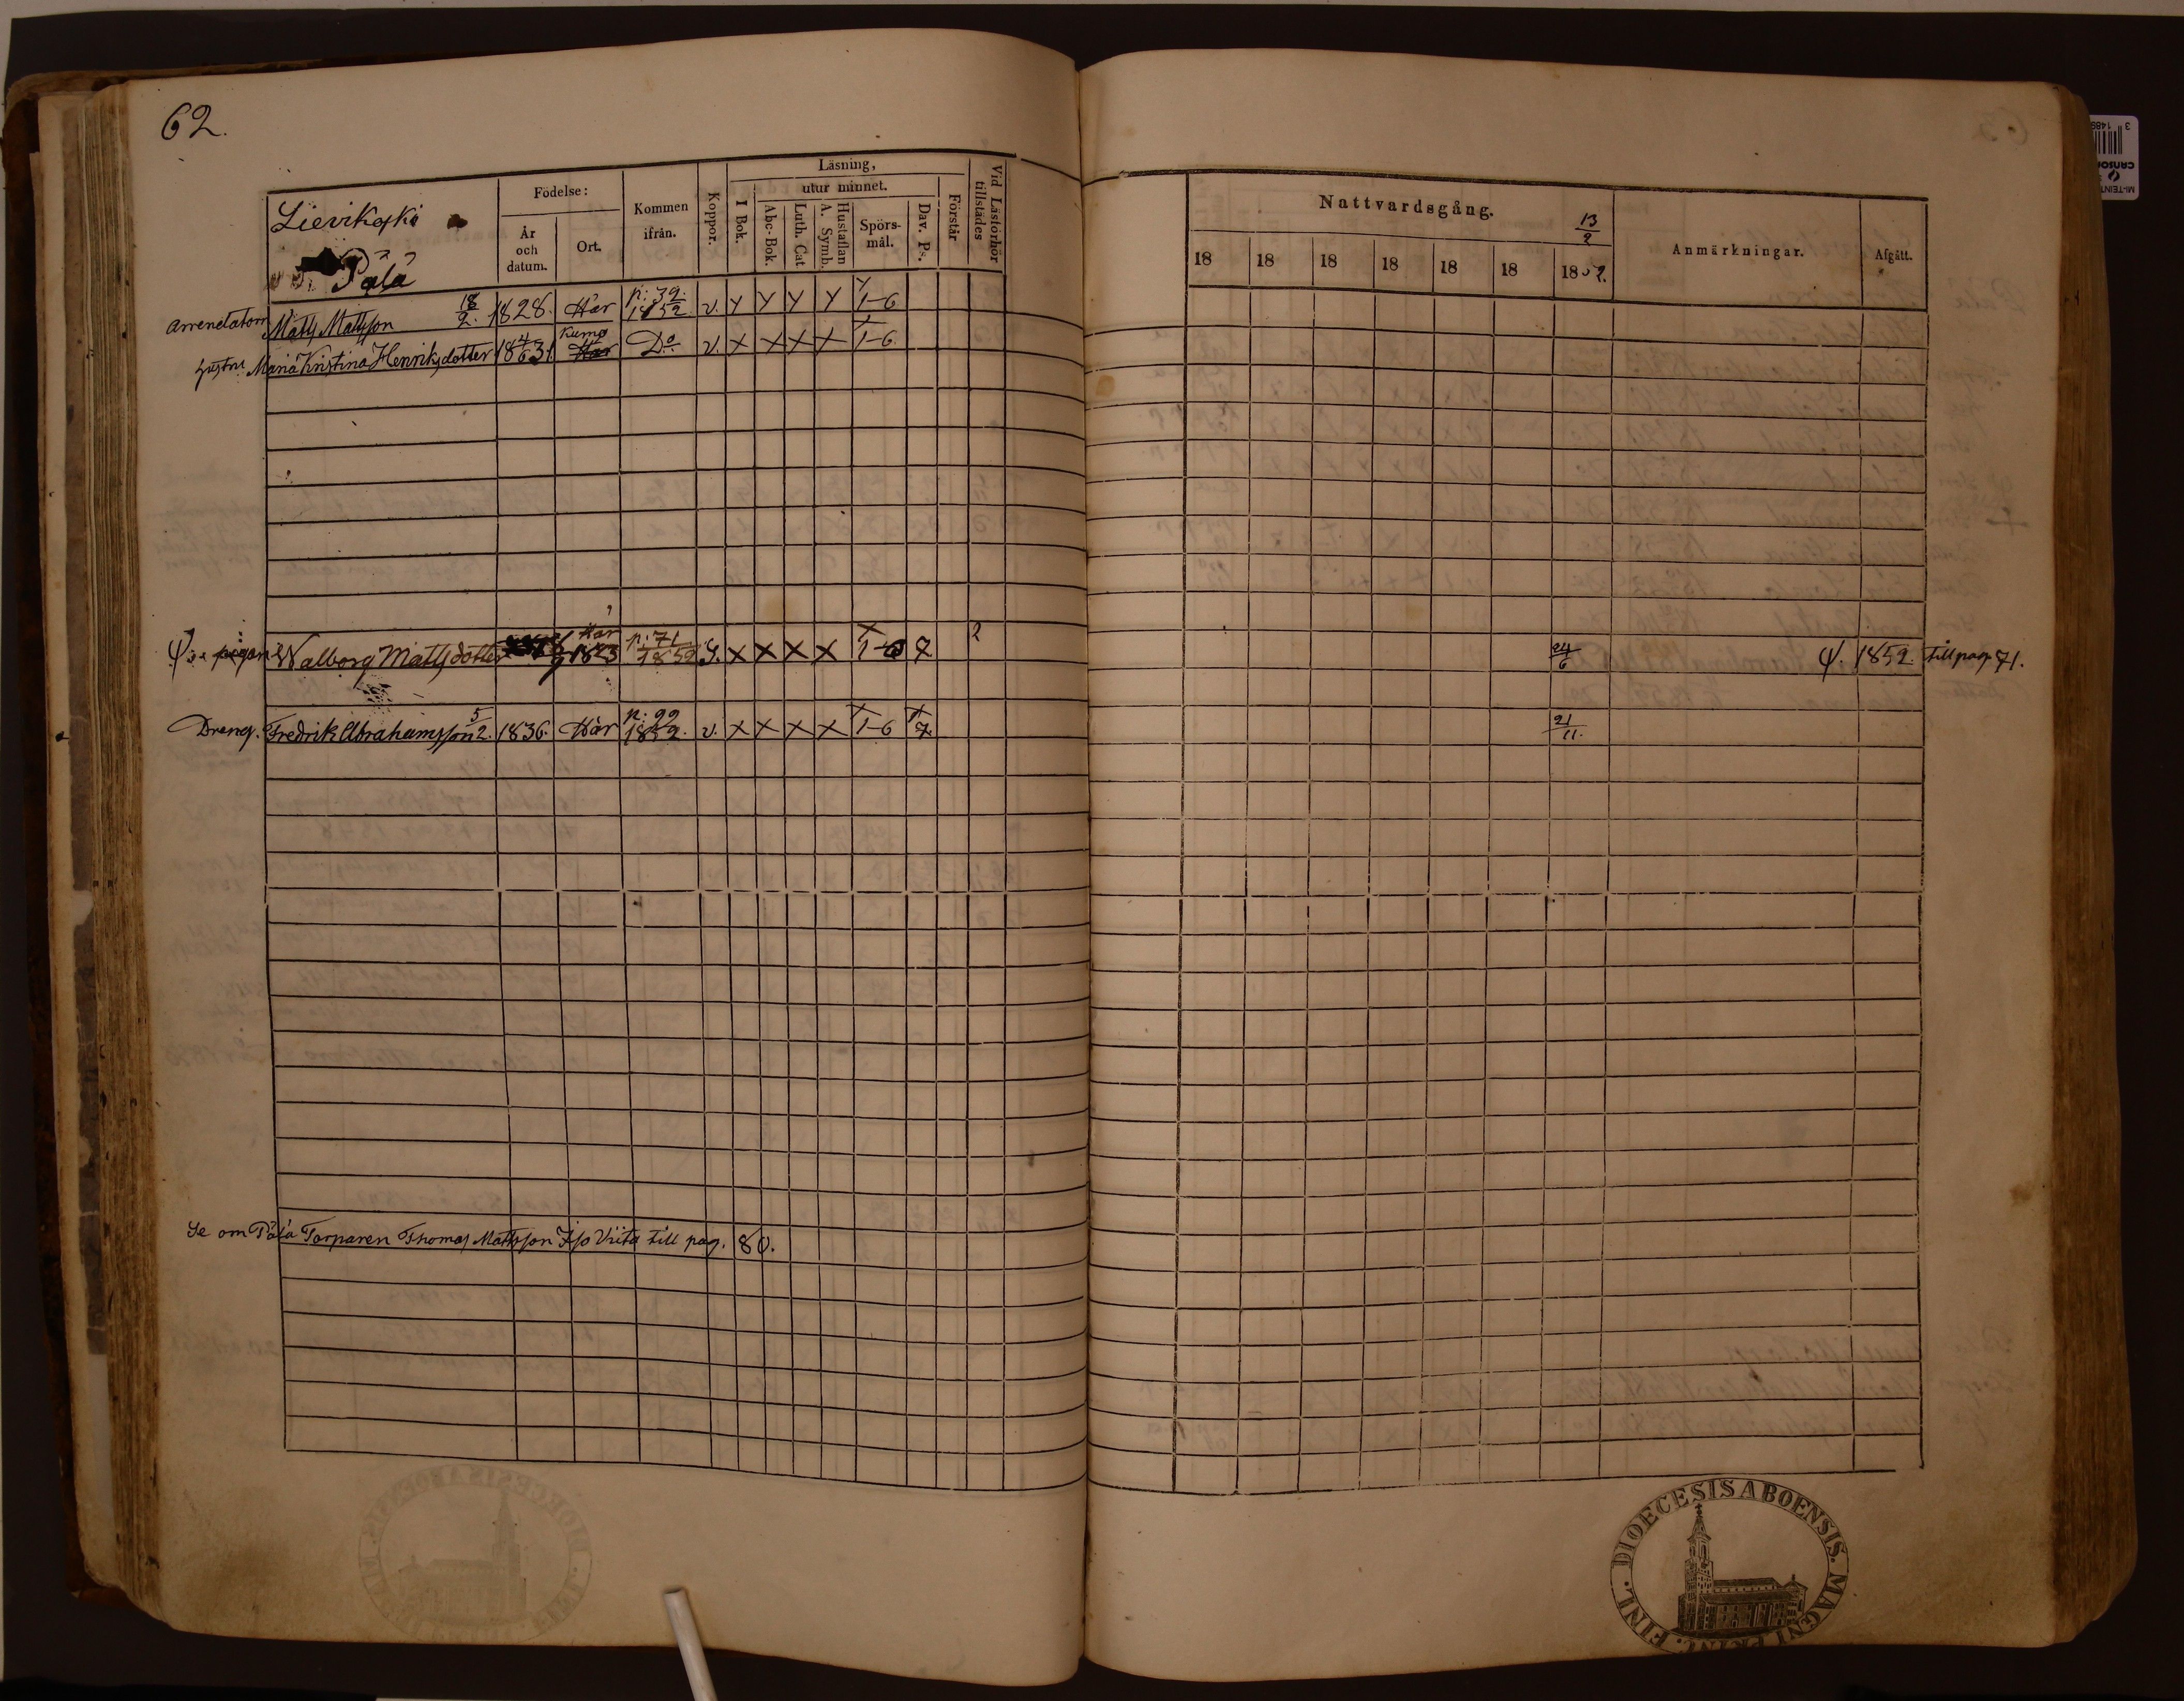 62.
Lievikoski
Pälä
Födelse:
År
och
datum.
Ort.
Kommen
ifrån.
Koppor.
Läsning,
utur minnet.
I Bok.
Abc-Bok.
Luth. Cat
Hustaflan
A. Symb.
Spörs-
mål.
Dav. Ps.
Förstår
Vid Läsförhör
tillstädes
Nattvardsgång.
13/2
18 18 18 18 18 18 1852.
Anmärkningar.
Afgått.
Arrendatorn Matts Mattsson 18/2. 1828. Här p: 39/1852 v. Y Y Y Y Y 1-6
hustru Maria Kristina Henriksdotter 4/6 1831 Kumo Här Do v. X X X X 1-6
pigan Walborg Mattsdotter 1823 Här p: 71/1852 X X X X X 1-6 7 2 24/6 1852. till pag. 71.
Dreng. Fredrik Abrahamsson 5/2. 1836. Här p: 99/1852. v. X X X X X 1-6 X 7. 21/11.
Se om Pälä Torparen Thomas Mattsson Iso Viita till pag. 80.
FINL. DIOECESIS ABOENSIS. MAGNI PRINC.